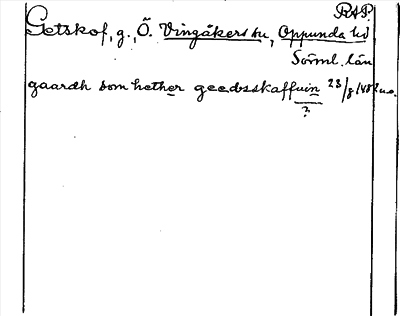 RAP.
Getskof, g., Ö. Vingåkers sn, Oppunda hd
Sörml. län
gaardh som hether geedsskaffuin 23/8
?